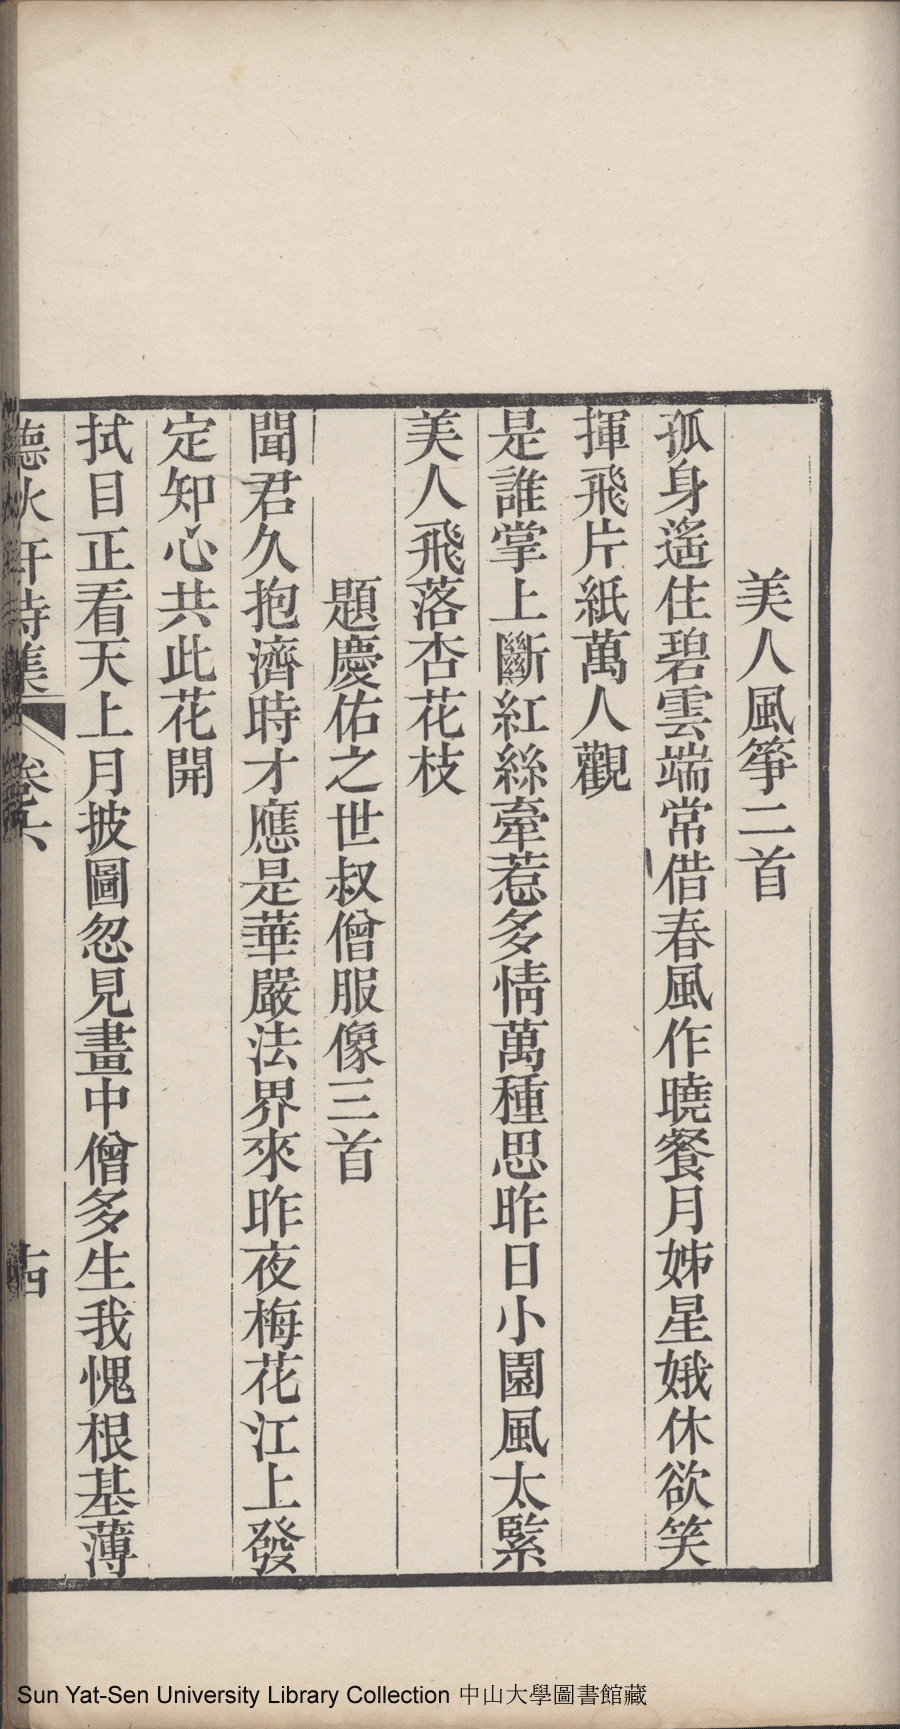 美人風箏二首
孤身遙住碧雲端常借春風作曉餐月姊星娥休欲笑
揮飛片紙萬人觀
是誰掌上斷紅絲牽惹多情萬種思昨日小園風太緊
美人飛落杏花枝
題慶佑之世叔僧服像三首
聞君久抱濟時才應是華嚴法界來昨夜梅花江上發
定知心共此花開
拭目正看天上月披圖忽見畫中僧多生我愧根基薄
詩集
卷六
十四
Sun Yat-Sen University Library Collection 中山大學圖書館藏